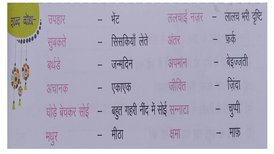 शब्द बोध-
उपहार – भेंट ललचाई नज़र – लालच भरी दृष्टि
सुबकते – सिसकियाँ लेते अंतर – फ़र्क
बर्थडे – जन्मदिन अपमान – बेइज्ज़ती
अचानक – एकाएक जीवित – ज़िंदा
घोड़े बेचकर सोई – बहुत गहरी नींद में सोई सन्नाटा – चुप्पी
मधुर – मीठा क्षमा – माफ़